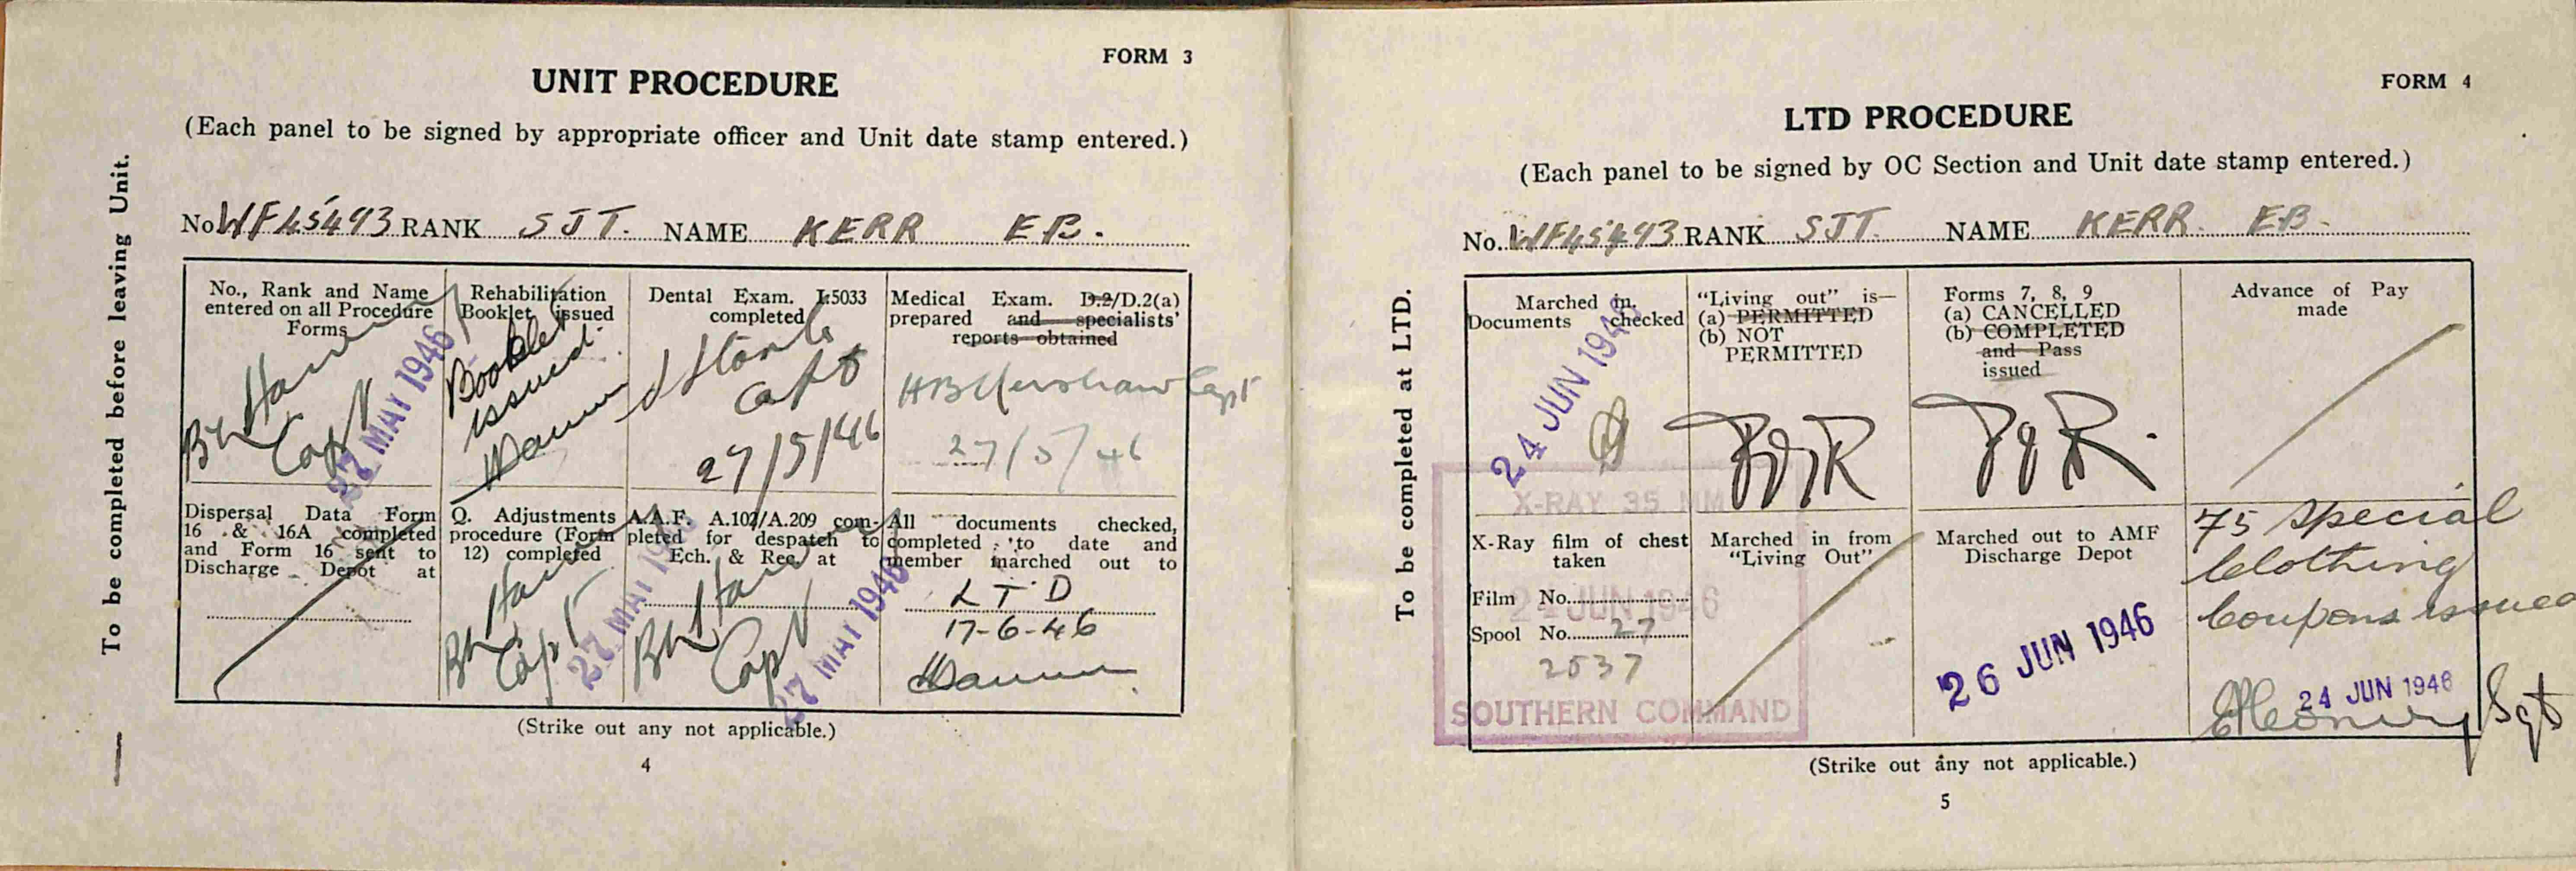 FORM 3
UNIT PROCEDURE
(Each panel to be signed by appropriate officer and Unit date stamp entered.)
To be completed before leaving Unit.
No. WF45493 RANK SJT. NAME KERR EB.
No., Rank and Name
entered on all Procedure
Forms
Capt
27 MAI 1946
Rehabilitation
Booklet issued
Booklet
issued.
Dental Exam. L5033
completed
Capt
27/5/46
Medical Exam. D.2/D.2(a)
prepared and specialists'
reports obtained
Capt
27/5/46
Dispersal Data Form
16 & 16A completed
and Form 16 sent to
Discharge Depot at
Q. Adjustments
procedure (Form
12) completed
Capt
27 MAI 1946
A.A.F. A.102/A.209 com-
pleted for despatch to
Ech. & Rec. at
Capt
27 MAI 1946
All documents checked,
completed to date and
member marched out to
LTD
17-6-46
(Strike out any not applicable.)
4
FORM 4
LTD PROCEDURE
(Each panel to be signed by OC Section and Unit date stamp entered.)
To be completed at LTD.
No. WF45493 RANK SJT. NAME KERR. EB.
Marched in.
Documents checked
24 JUN 1946
"Living out" is—
(a) PERMITTED
(b) NOT
PERMITTED
Forms 7, 8, 9
(a) CANCELLED
(b) COMPLETED
and Pass
issued
Advance of Pay
made
X-RAY 35 MM
X-Ray film of chest
taken
Film No.
24 JUN 1946
Spool No. 27
2537
SOUTHERN COMMAND
Marched in from
"Living Out"
Marched out to AMF
Discharge Depot
26 JUN 1946
75 special
clothing
coupons issued
24 JUN 1946
Sgt
(Strike out any not applicable.)
5